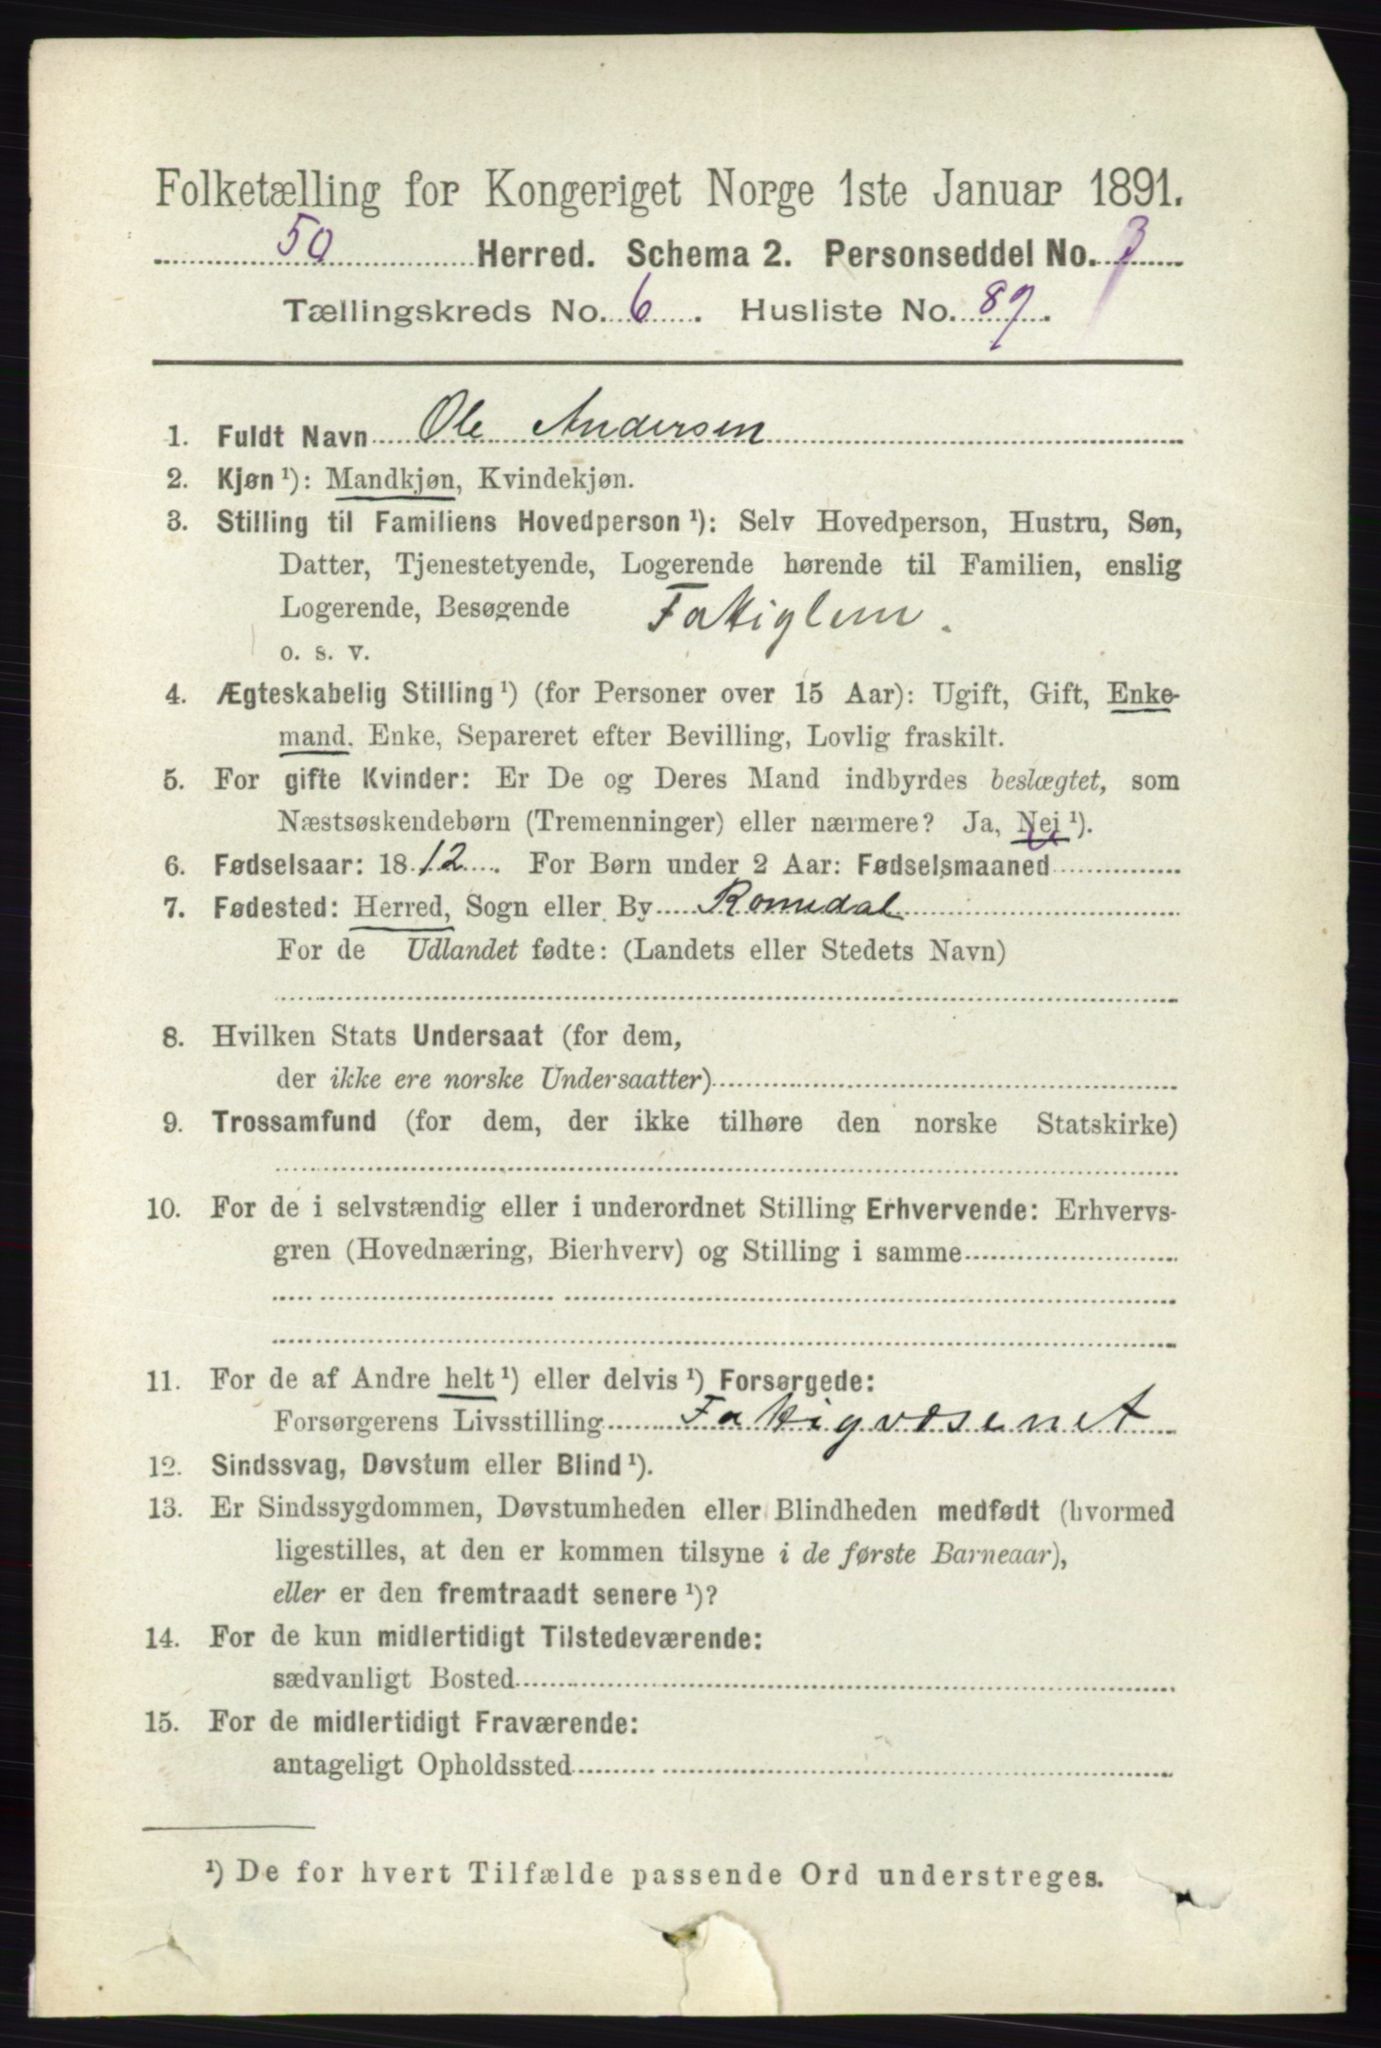 Folketælling for Kongeriget Norge 1ste Januar 1891.
50 Herred. Schema 2. Personseddel No. 3
Tællingskreds No. 6. Husliste No. 89.
1. Fuldt Navn Ole Andersen
2. Kjøn ¹): Mandkjøn, Kvindekjøn.
3. Stilling til Familiens Hovedperson ¹): Selv Hovedperson, Hustru, Søn,
Datter, Tjenestetyende, Logerende hørende til Familien, enslig
Logerende, Besøgende Fattiglem.
o. s. v.
4. Ægteskabelig Stilling ¹) (for Personer over 15 Aar): Ugift, Gift, Enke-
mand, Enke, Separeret efter Bevilling, Lovlig fraskilt.
5. For gifte Kvinder: Er De og Deres Mand indbyrdes beslægtet, som
Næstsøskendebørn (Tremenninger) eller nærmere? Ja, Nei ¹).
6. Fødselsaar: 1812. For Børn under 2 Aar: Fødselsmaaned
7. Fødested: Herred, Sogn eller By Romedal
For de Udlandet fødte: (Landets eller Stedets Navn)
8. Hvilken Stats Undersaat (for dem,
der ikke ere norske Undersaatter)
9. Trossamfund (for dem, der ikke tilhøre den norske Statskirke)
10. For de i selvstændig eller i underordnet Stilling Erhvervende: Erhvervs-
gren (Hovednæring, Bierhverv) og Stilling i samme
11. For de af Andre helt ¹) eller delvis ¹) Forsørgede:
Forsørgerens Livsstilling Fattigvæsenet
12. Sindssvag, Døvstum eller Blind ¹).
13. Er Sindssygdommen, Døvstumheden eller Blindheden medfødt (hvormed
ligestilles, at den er kommen tilsyne i de første Barneaar),
eller er den fremtraadt senere ¹)?
14. For de kun midlertidigt Tilstedeværende:
sædvanligt Bosted
15. For de midlertidigt Fraværende:
antageligt Opholdssted
¹) De for hvert Tilfælde passende Ord understreges.